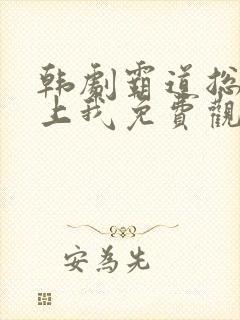 韩劇霸道总
上我免費觀
安為先